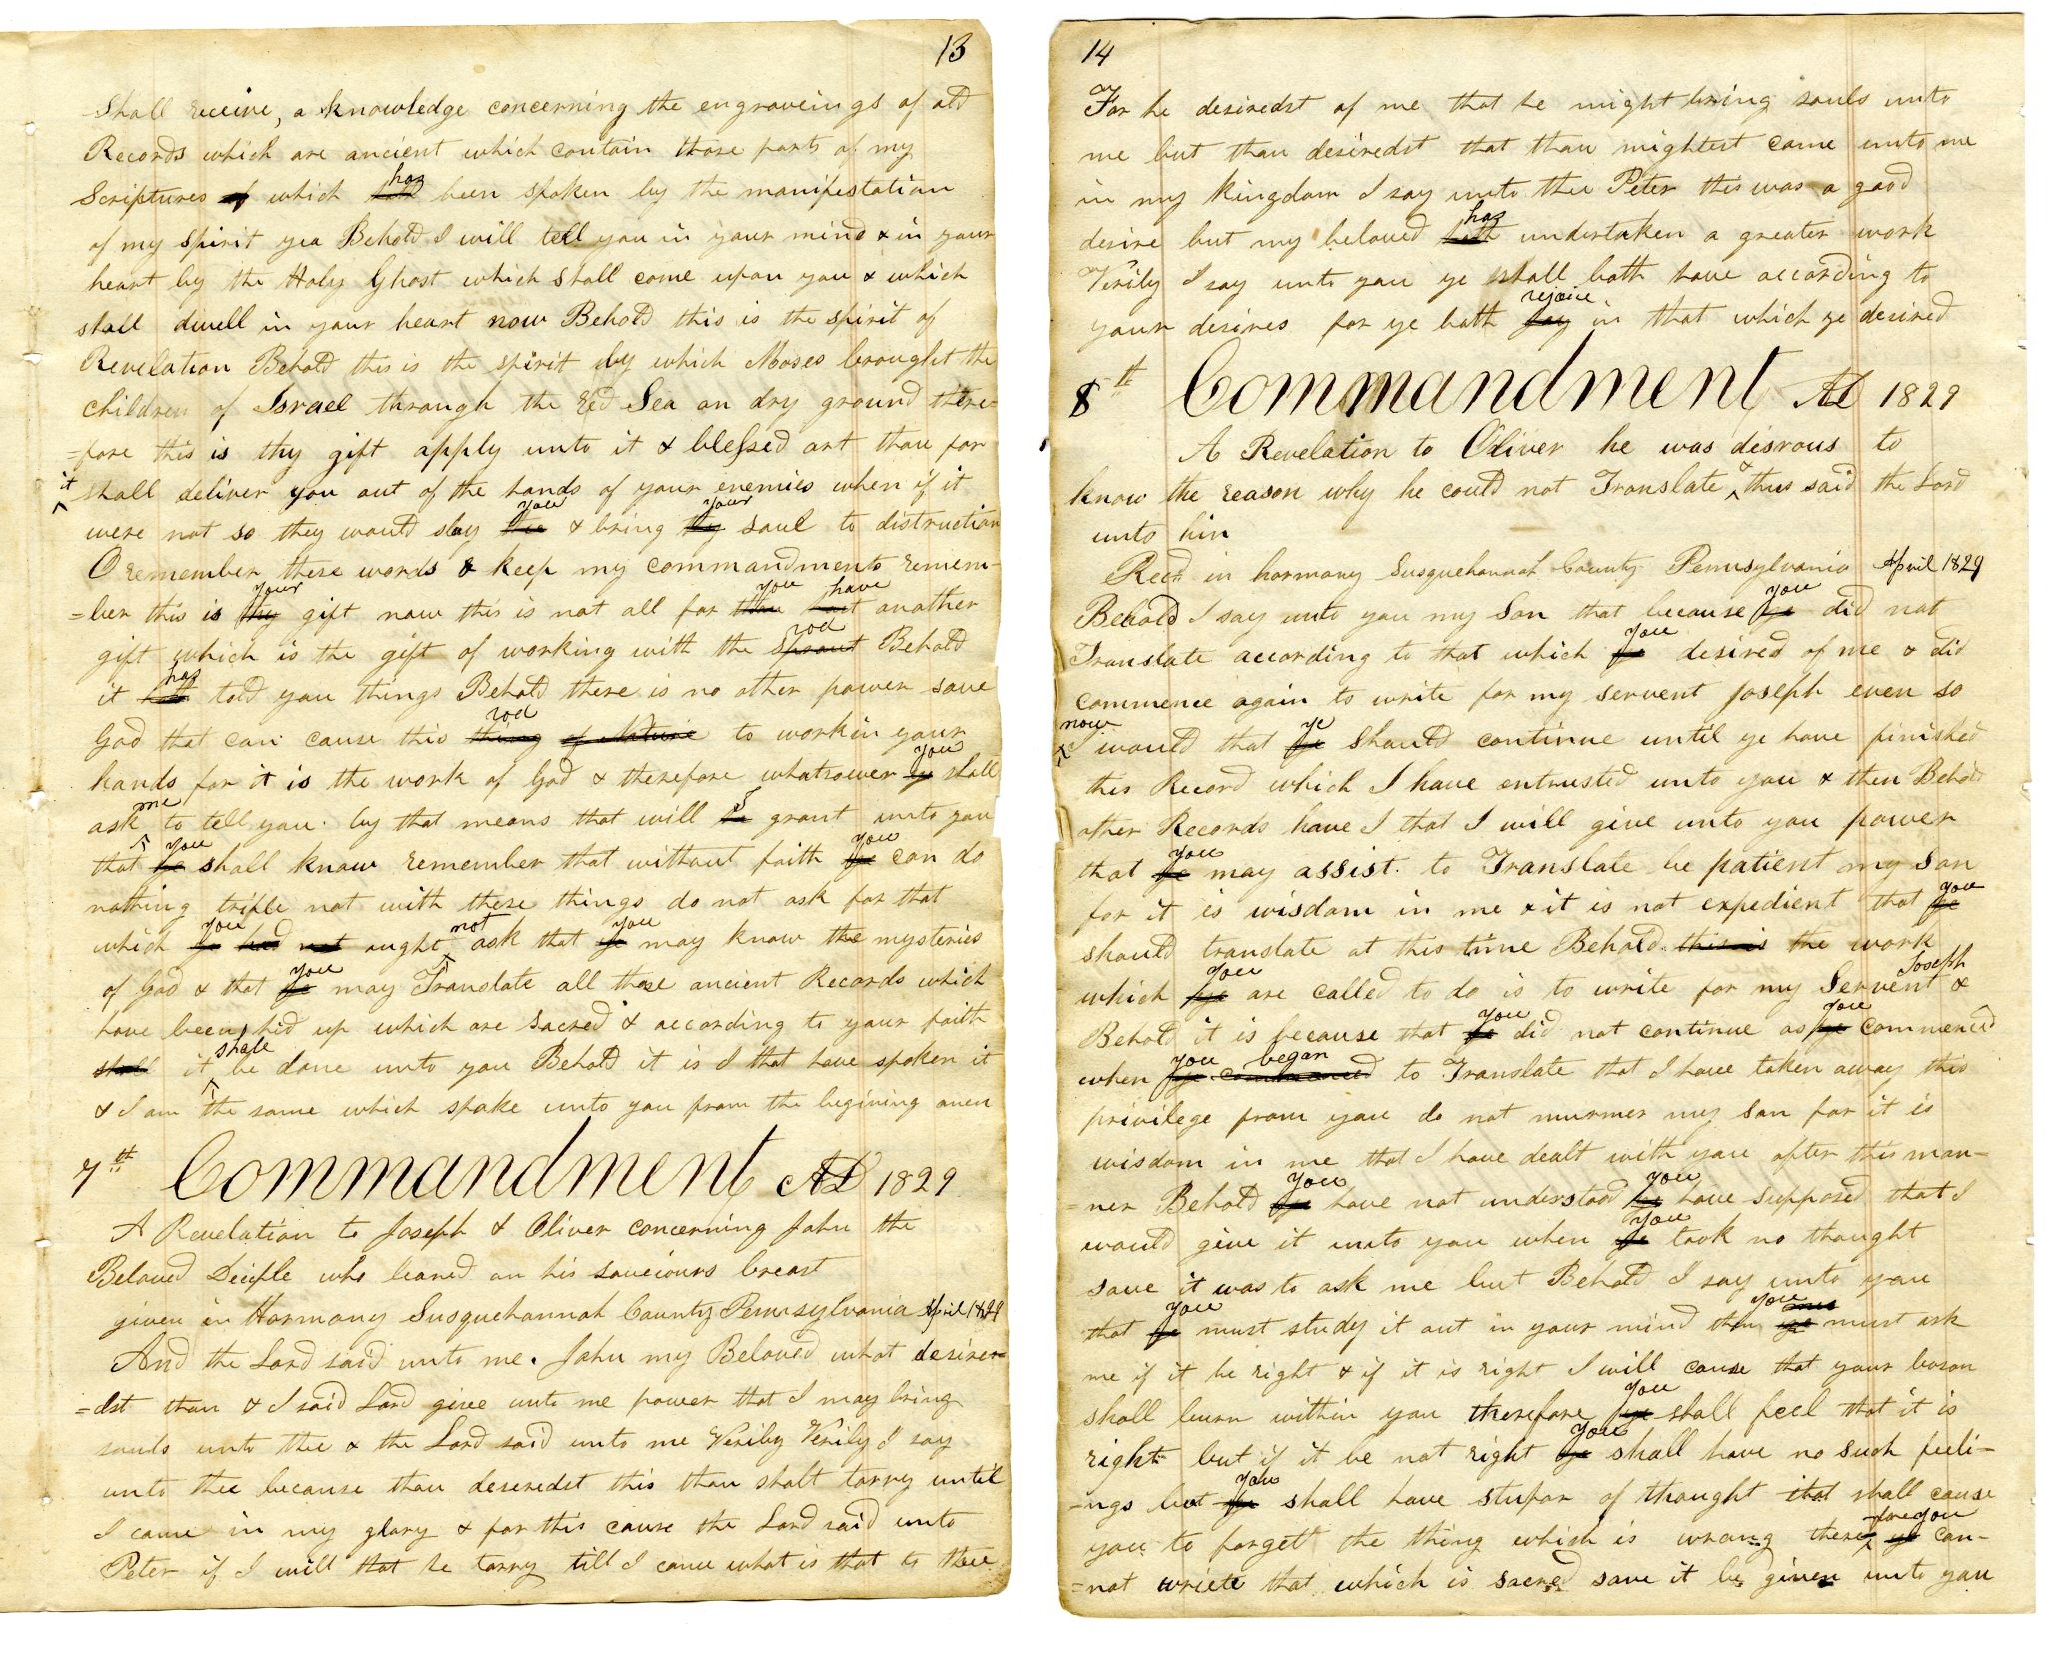 13
shall receive, a knowledge concerning the engraveings of old
Records which are ancient which contain those parts of my
Scriptures of which hath has been spoken by the manifestation
of my spirit yea Behold I will tell you in your mind & in your
heart by the Holy Ghost which shall come upon you & which
shall dwell in your heart now Behold this is the spirit of
Revelation Behold this is the spirit by which Moses brought the
children of Israel through the red Sea on dry ground there=
=fore this is thy gift apply unto it & blessed art thou for
it shall deliver you out of the hands of your enemies when if it
were not so they would slay thee you & bring thy your soul to distruction
O remember these words & keep my commandments remem-
=ber this is thy your gift now this is not all for thou you hast have another
gift which is the gift of working with the sprout rod Behold
it hath has told you things Behold there is no other power save
God that can cause this thing of Nature rod to work in your
hands for it is the work of God & therefore whatsoever ye you shall
ask me to tell you by that means that will he I grant unto you
that ye you shall know remember that without faith ye you can do
nothing trifle not with these things do not ask for that
which ye you had not ought not ask that ye you may know the mysteries
of God & that ye you may Translate all those ancient Records which
have been hid up which are sacred & according to your faith
shall it shall be done unto you Behold it is I that have spoken it
& I am the same which spake unto you from the begining amen
7th Commandment AD 1829
A Revelation to Joseph & Oliver concerning John the
Beloved Deciple who leaned on his saveiours breast
given in Harmony Susquehannah County Pennsylvania April 1829
And the Lord said unto me. John my Beloved what desires=
=dst thou & I said Lord give unto me power that I may bring
souls unto thee & the Lord said unto me Verily Verily I say
unto thee because thou deseredst this thou shalt tarry until
I come in my glory & for this cause the Lord said unto
Peter if I will that he tarry till I come what is that to thee
14
For he desiredst of me that he might bring souls unto
me but thou desiredst that thou mightest come unto me
in my kingdom I say unto thee Peter this was a good
desire but my beloved hath has undertaken a greater work
Verily I say unto you ye shall both have according to
your desires for ye both joy rejoice in that which ye desired
8th Commandment AD 1829
A Revelation to Oliver he was disrous to
know the reason why he could not Translate & thus said the Lord
unto him
Recd in harmony Susquehannah County Pennsylvania April 1829
Behold I say unto you my Son that because ye you did not
Translate according to that which ye you desired of me & did
commence again to write for my servent Joseph even so
now I would that ye ye should continue until ye have finished
this Record which I have entrusted unto you & then Behold
other Records have I that I will give unto you power
that ye you may assist. to Translate be patient my Son
for it is wisdom in me & it is not expedient that ye you
should translate at this time Behold this is the work
which ye you are called to do is to write for my Servent Joseph &
Behold it is because that ye you did not continue as ye you commenced
when ye you commenced began to Translate that I have taken away this
privilege from you do not murmer my son for it is
wisdom in me that I have dealt with you after this man-
=ner Behold ye you have not understood ye you have supposed that I
would give it unto you when ye you took no thought
save it was to ask me but Behold I say unto you
that ye you must study it out in your mind then ye you must ask
me if it be right & if it is right I will cause that your bosom
shall burn within you therefore ye you shall feel that it is
right but if it be not right ye you shall have no such feeli-
=ngs but ye you shall have stupor of thought that shall cause
you to forgett the thing which is wrong there fore ye you can-
=not wriete that which is sacred save it be given unto you